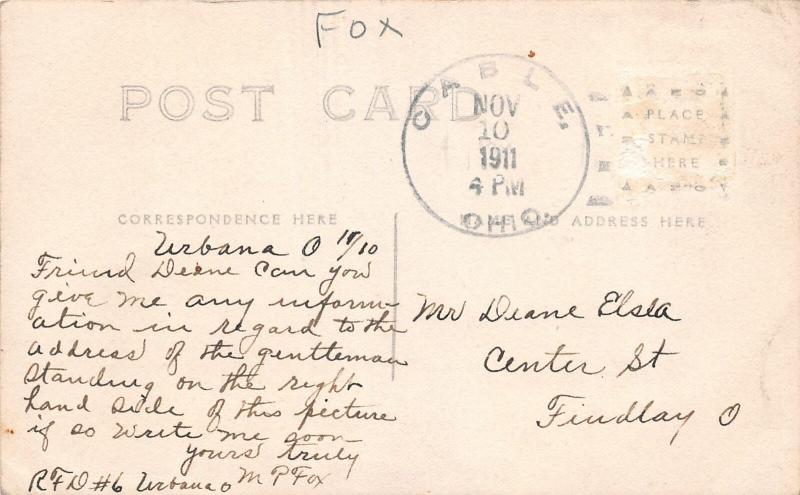 FOX
POST CARD
CABLE,
NOV
10
1911
4 PM
OHIO.
PLACE
STAMP
HERE
CORRESPONDENCE HERE
NAME AND ADDRESS HERE
Urbana O 11/10
Friend Deane can you
give me any inform-
ation in regard to the
address of the gentteman
standing on the right
hand side of this picture
if so write me soon
yours truly
M P Fox
RFD #6 Urbana O
Mr Deane Elsea
Center St
Findlay O